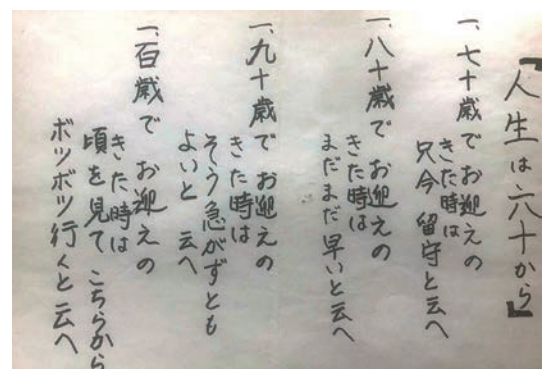 『人生は六十から』
一、七十歳でお迎えの
きた時は
只今留守と云へ
一、八十歳でお迎えの
きた時は
まだまだ早いと云へ
一、九十歳でお迎えの
きた時は
そう急がずとも
よいと云へ
一、百歳でお迎えの
きた時は
頃を見てこちらから
ボツボツ行くと云へ